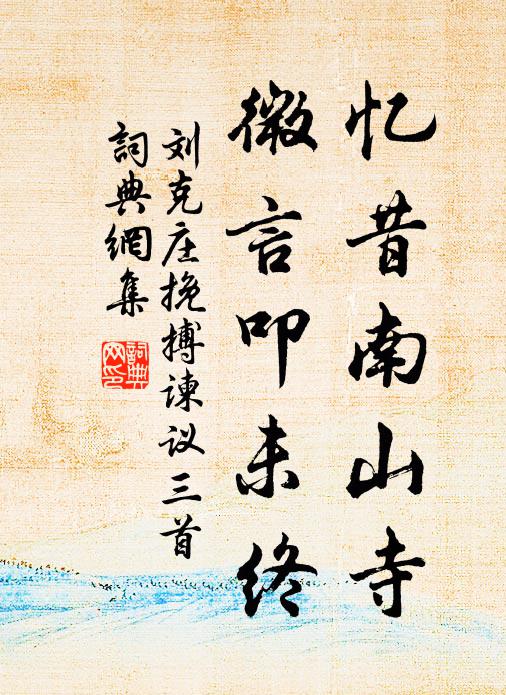 忆昔南山寺
微言叩未终
刘克庄挽搏谏议三首
词典網集
詞典网印